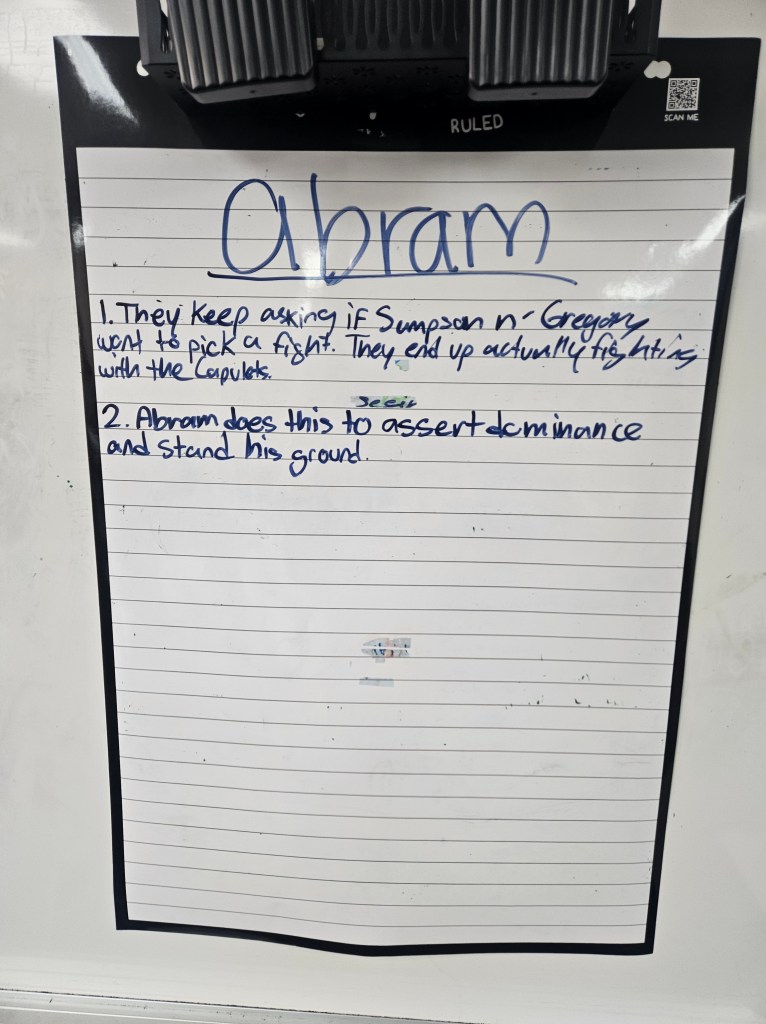 RULED
SCAN ME
abram
1. They keep asking if Sampson n' Gregory
want to pick a fight. They end up actually fighting
with the Capulets.
2. Abram does this to assert dominance
and stand his ground.